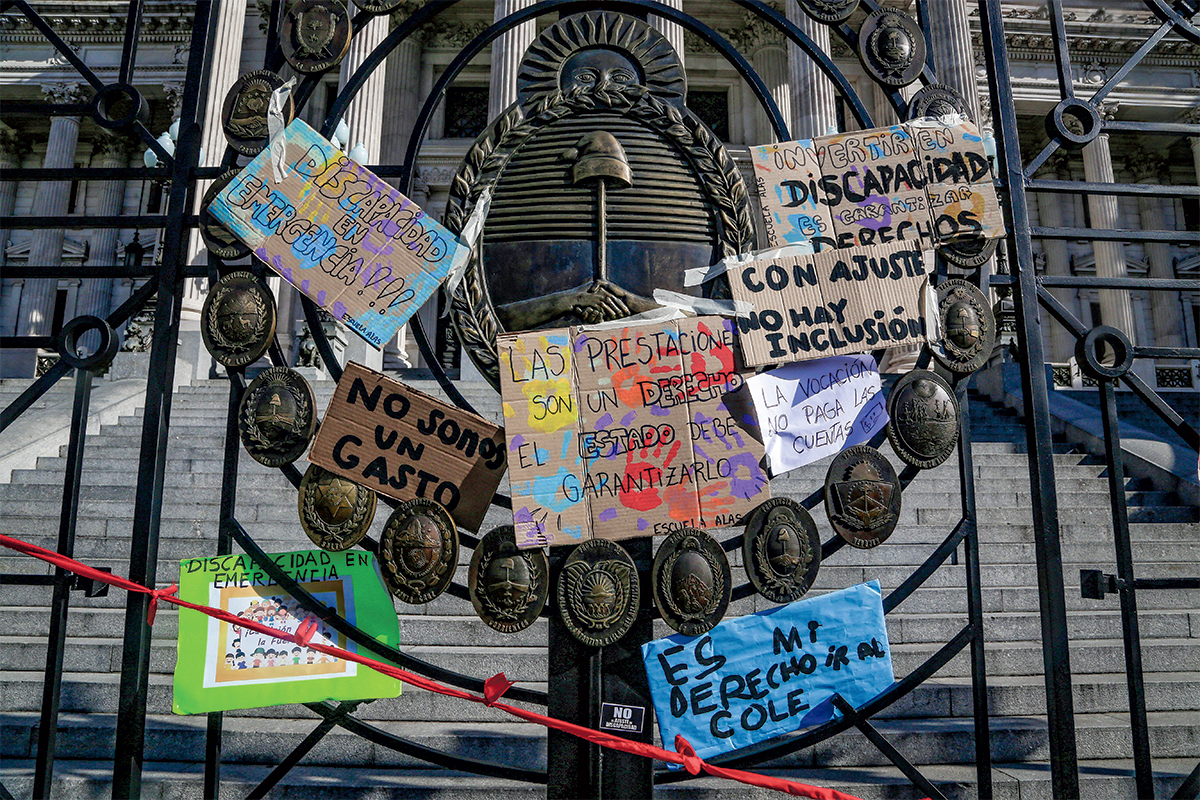 DISCAPACIDAD
EN
EMERGENCIA!!!
ESCUELA ALAS
INVERTIR EN
DISCAPACIDAD
ES GARANTIZAR
DERECHOS
ESCUELA ALAS
CON AJUSTE
NO HAY
INCLUSIÓN
LAS PRESTACIONE
SON UN DERECHO
EL ESTADO DEBE
GARANTIZARLO
ESCUELA ALAS
LA VOCACIÓN
NO PAGA LAS
CUENTAS
NO SOMOS
UN
GASTO
DISCAPACIDAD EN
EMERGENCIA
ES MI
DERECHO IR AL
COLE
NO
AJUSTE
DISCAPACIDAD